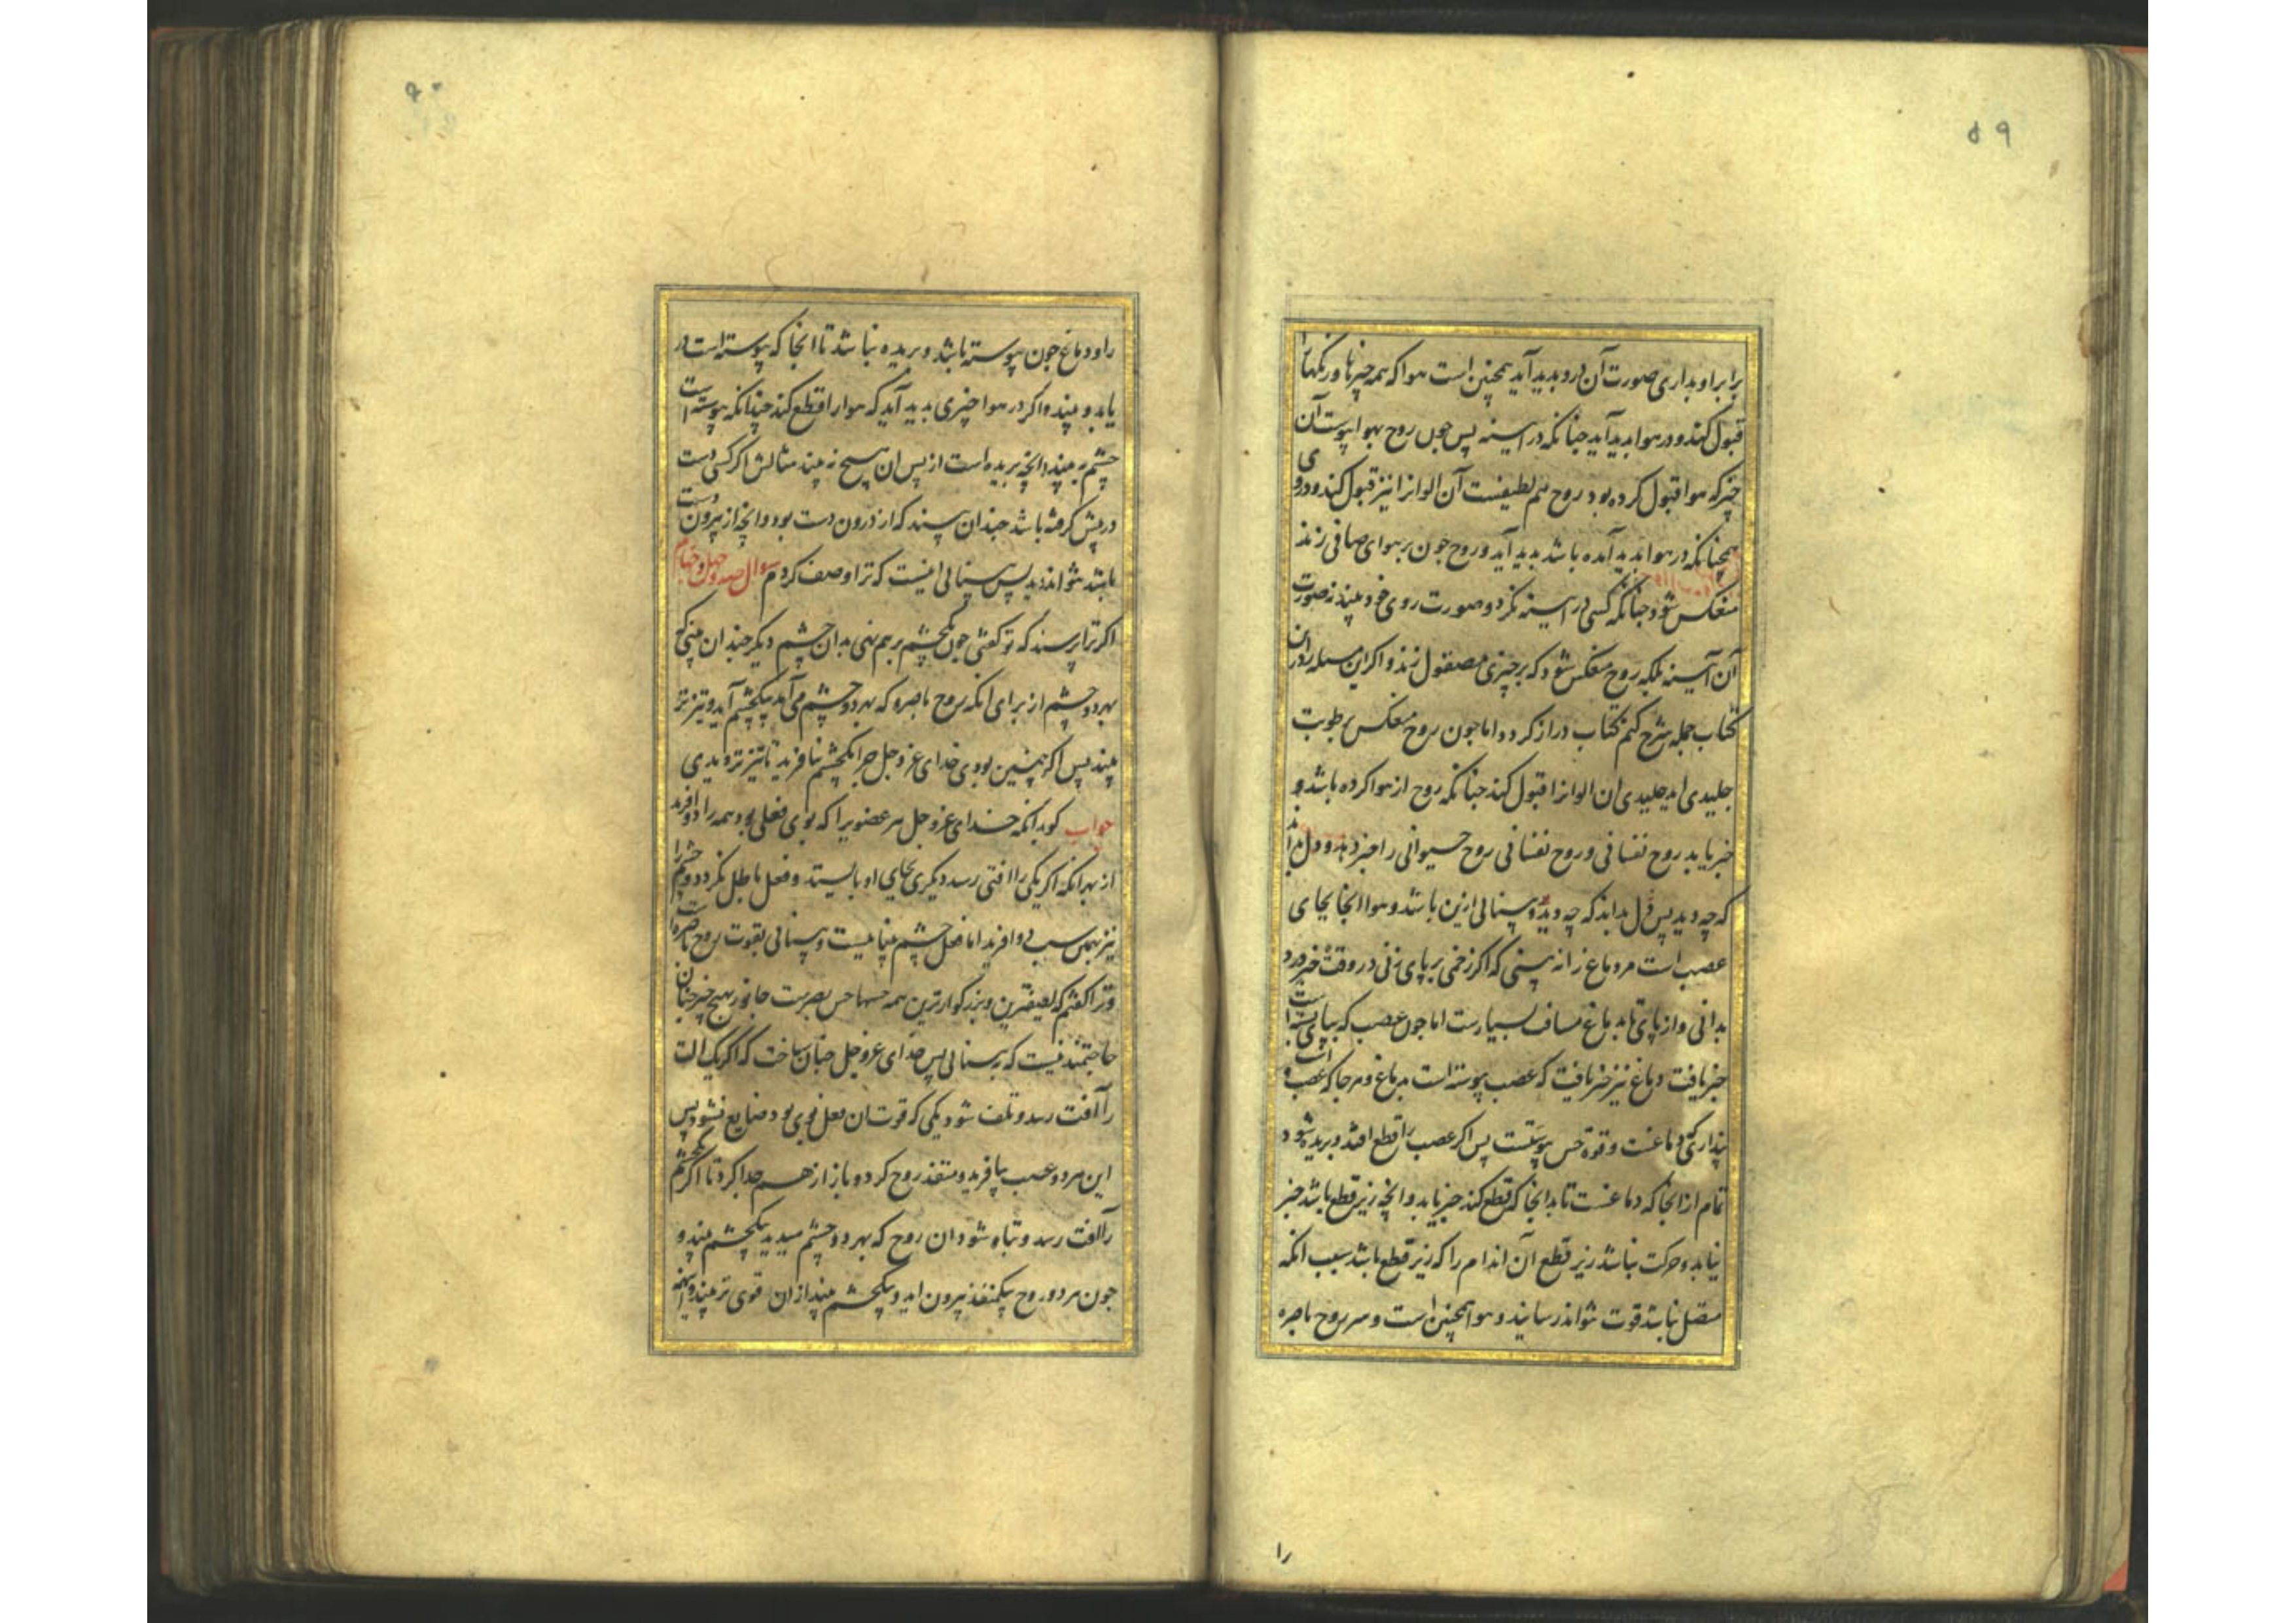 ۵۹
برابر او بداری صورت آن درو بدید آید همچنین است هوا که همه چیزها و رنکها را
قبول کند و در هوا بدید آید چنانکه در اسینه پس چون روح بهوا پیوست آن
چیز که هوا قبول کرده بود روح هم لطیفست آن الوانرا نیز قبول کند و درو
همچنانکه در هوا بدید آمده باشد بدید آید و روح چون بر هوای صافی زند
منعکس شود چنانکه کسی در اسینه نکرد و صورت روی خود بیند نه صورت
آن آسینه بلکه روح منعکس شود که بر چیزی مصقول زند و اکر این مسله را درین
کتاب جمله شرح کنم کتاب دراز کردد اما چون روح منعکس برطوبت
جلیدی اید جلیدی ان الوانرا قبول کند چنانکه روح از هوا کرده باشد و
خبر یابد روح نفسانی و روح نفسانی روح حیوانی را خبر دهد و دل بداند
که چه دید پس دل بداند که چه دید و بینائی ازین باشد و هوا انجا بجای
عصب است مر دماغ را نه بینی که اکر زخمی بر پای زنی در وقت خبر درد
بدانی و از پای تا بدماغ مسافت بسیارست اما چون عصب که بپای پیوسته است
خبر یافت دماغ نیز خبر یافت که عصب پیوسته است بدماغ و هر جا که عصب است
پنداری که دماغست و قوة حس پیوستست پس اکر عصب را قطع افتد و بریده شود
تمام از انجا که دماغست تا بدانجا که قطع کند خبر یابد و انچه زیر قطع باشد خبر
نیابد و حرکت نباشد زیر قطع آن اندام را که زیر قطع باشد بسبب انکه
متصل نباشد قوت نتواند رسانید و هوا همچنین است و مر روح باصره
را
۶۰
را و دماغ چون پیوسته باشد و بریده نباشد تا انجا که پیوسته است در
یابد و بیند و اکر در هوا چیزی بدید آید که هوا را قطع کند چندانکه پیوسته است
چشم به بیند و انچه بریده است از پس ان هیچ نه بیند مثالش اکر کسی دست
در پیش کرفته باشد چندان بیند که از درون دست بود و انچه از بیرون دست
باشد نتواند دید پس بینائی اینست که ترا وصف کردم سوال صد و چهل و چهارم
اکر ترا پرسند که تو کفتی چون یکچشم برهم نهی بدان چشم دیکر چندان بینی که
بهر دو چشم از برای انکه روح باصره که بهر دو چشم می آمد بیکچشم آید و تیزتر
بیند پس اکر همچنین بودی خدای عز و جل چرا یکچشم نیافرید تا تیزتر دیدی
جواب کوید انکه خدای عز و جل هر عضویرا که بوی فعلی بود همه را دو افرید
از بهر انکه اکر یکی را افتی رسد دیکری بجای او بایستد و فعل باطل نکردد و چشم را
نیز بهمین سبب دو افرید اما فعل چشم بینائیست و بینائی بقوت روح باصره است
و ترا کفتم که لطیفترین و بزرکوارترین همه حسها حس بصرست جانور بهیچ چیز چنان
حاجتمند نیست که به بینائی پس خدای عز و جل چنان ساخت که اکر یک الت
را آفت رسد و تلف شود یکی که قوت ان فعل قوی بود ضایع نشود پس
این هر دو عصب بیافرید و منفذ روح کرد و باز از هم جدا کرد تا اکر یکچشم
را آفت رسد و تباه شود ان روح که بهر دو چشم میدید بیکچشم بیند و
چون هر دو روح بیکمنفذ بیرون اید و بیکچشم بیند از ان قوی تر بیند